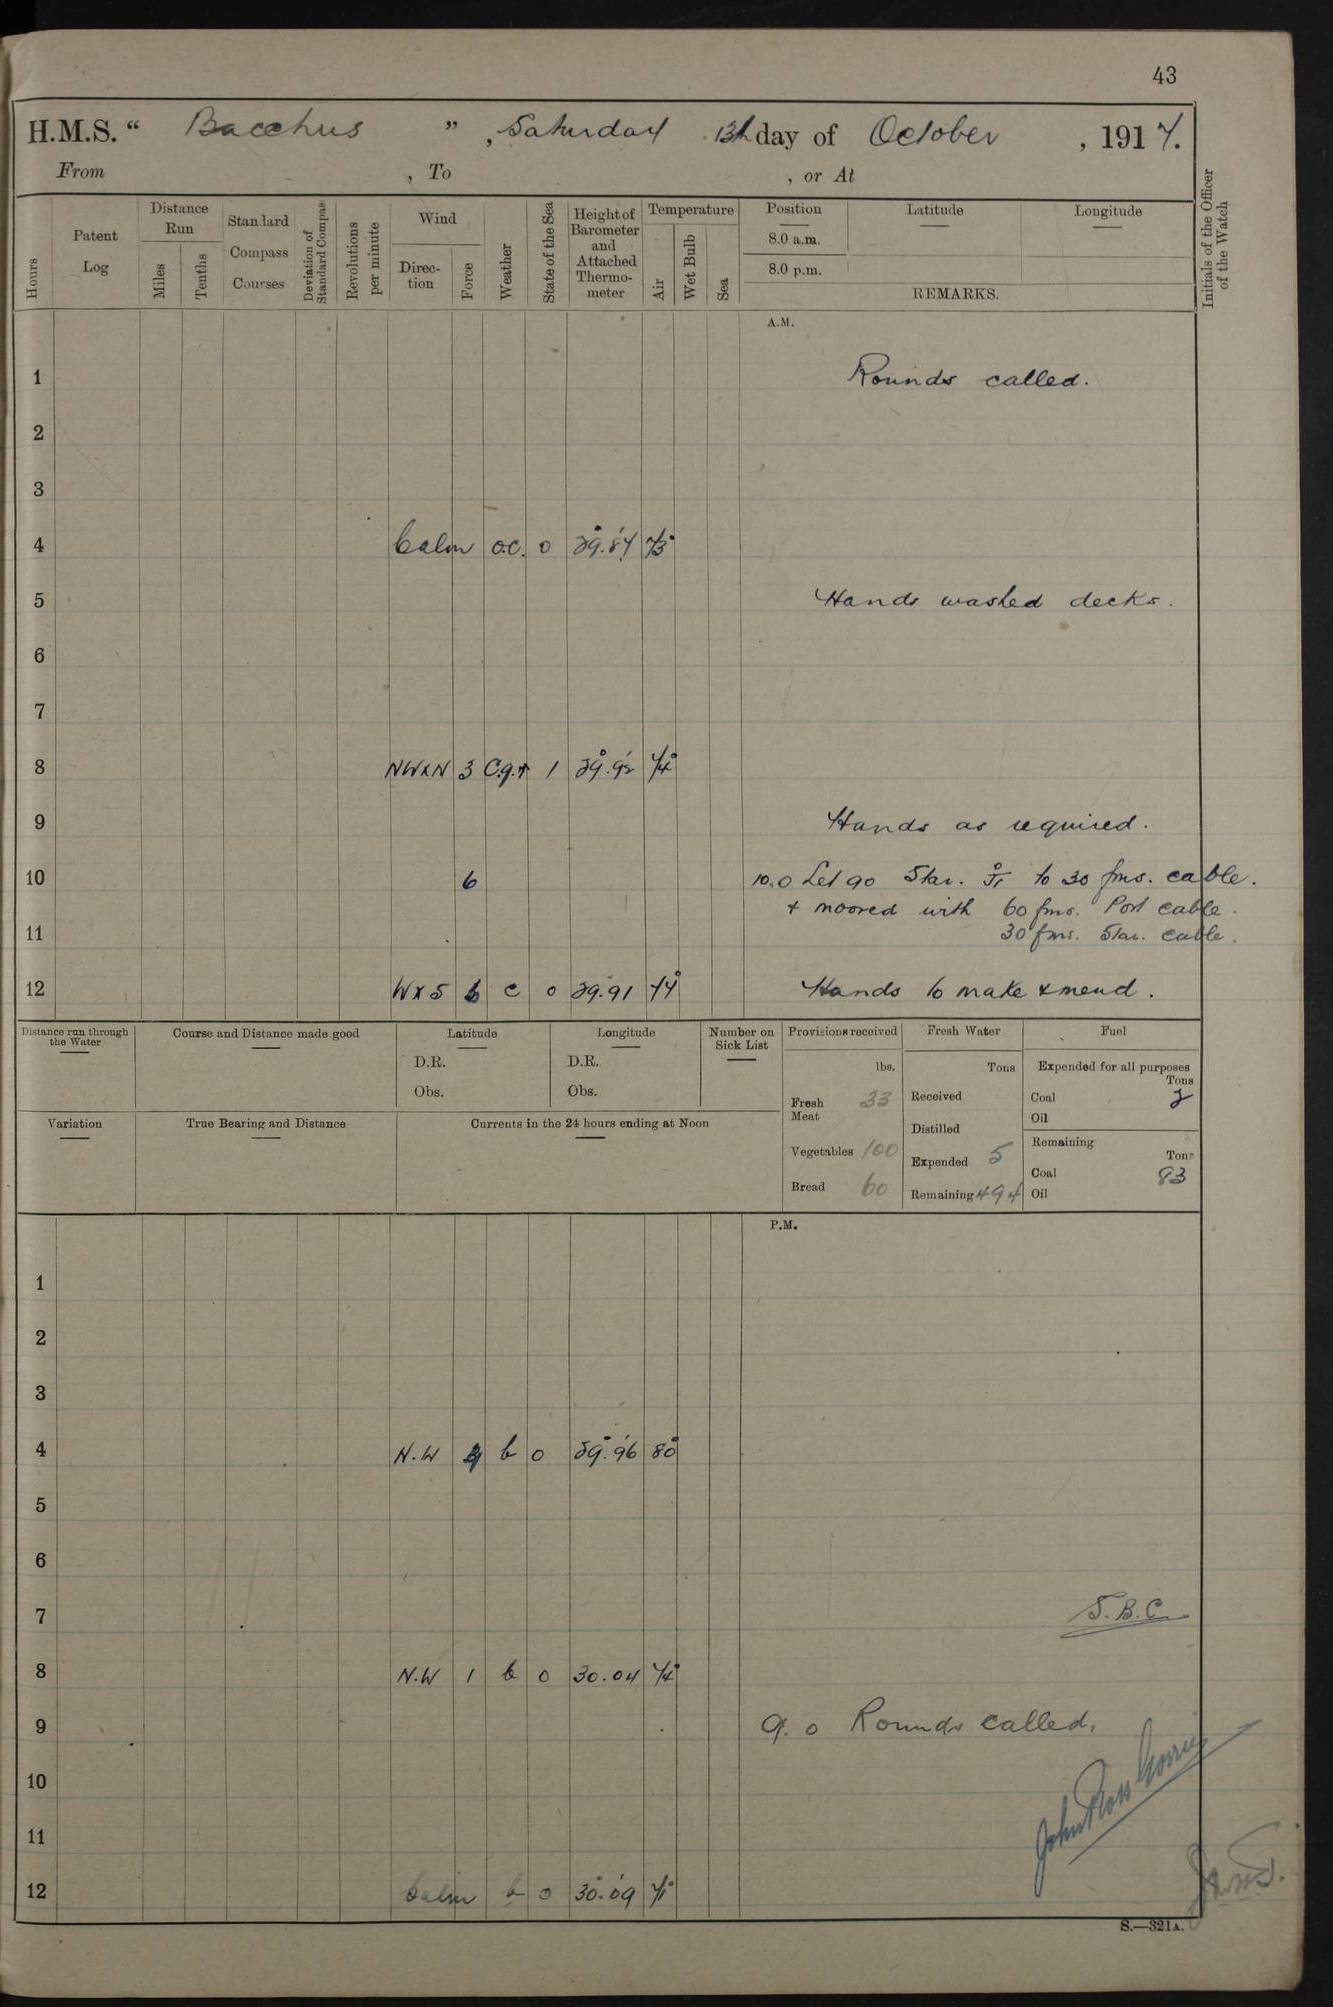 43
H.M.S. “ Bacchus ” , Saturday 13th day of October , 1917.
From , To , or At
Hours
Patent Log
Distance Run
Miles
Tenths
Standard Compass Courses
Deviation of Standard Compass
Revolutions per minute
Wind
Direction
Force
Weather
State of the Sea
Height of Barometer and Attached Thermometer
Temperature
Air
Wet Bulb
Sea
Position
8.0 a.m.
8.0 p.m.
Latitude
Longitude
REMARKS.
Initials of the Officer of the Watch
A.M.
1 Rounds called.
2
3
4 Calm o.c. 0 29.87 73°
5 Hands washed decks.
6
7
8 NWxN 3 c.q.r 1 29.92 74°
9 Hands as required.
10 6 10.0 Let go Star. to 30 fms. cable.
& moored with 60 fms. Port cable.
11 30 fms. Star. cable.
12 WxS 6 c 0 29.91 77° Hands to make & mend.
Distance run through the Water
Course and Distance made good
Latitude
D.R.
Obs.
Longitude
D.R.
Obs.
Number on Sick List
Provisions received
lbs.
Fresh Meat 33
Vegetables 100
Bread 60
Fresh Water
Tons
Received
Distilled
Expended 5
Remaining 494
Fuel
Expended for all purposes
Tons
Coal 2
Oil
Remaining
Tons
Coal 83
Oil
Variation
True Bearing and Distance
Currents in the 24 hours ending at Noon
P.M.
1
2
3
4 N.W 4 b 0 29.96 80°
5
6
7 S.B.C
8 N.W 1 b 0 30.04 74°
9 9.0 Rounds called.
10
11 John Ross Gorrie
12 Calm b 0 30.09 71°
S.—321A.